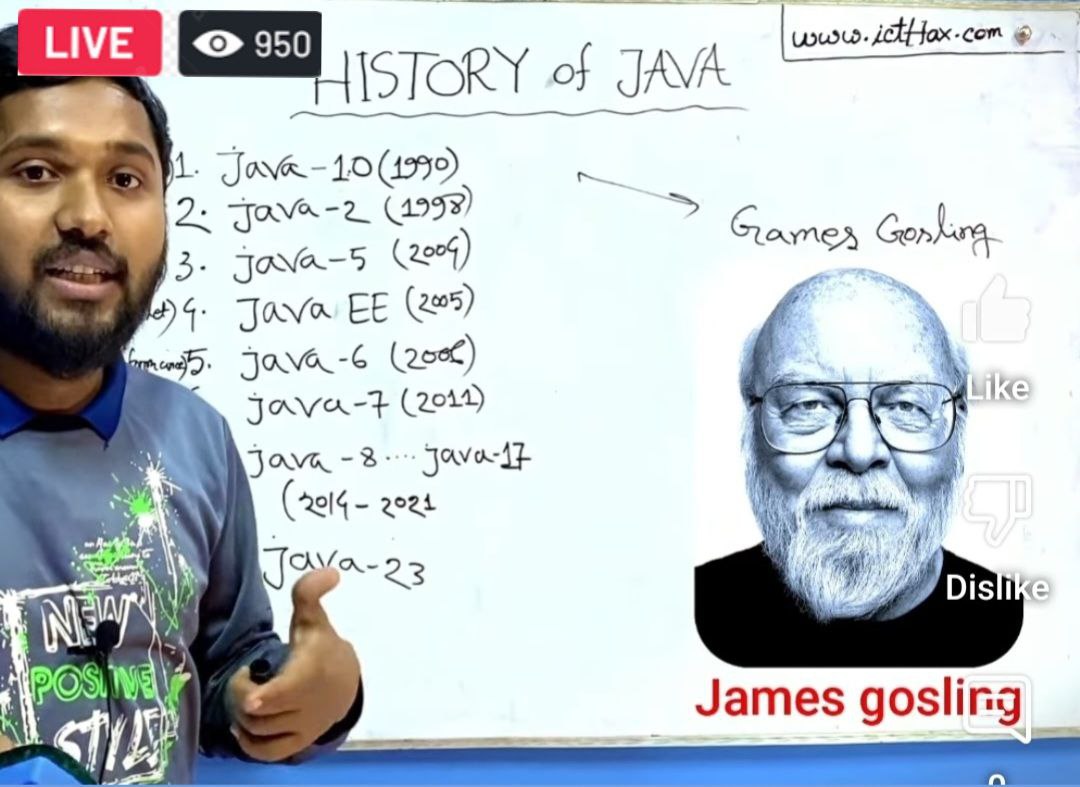 LIVE 950
www.ictHax.com
HISTORY of JAVA
1. Java-1.0 (1990)
2. java-2 (1998)
3. java-5 (2004)
4. Java EE (2005)
5. java-6 (2006)
java-7 (2011)
java-8.... java-17
(2014-2021
Java-23
Games Gosling
Like
Dislike
James gosling
NEW
POSITIVE
STYLE